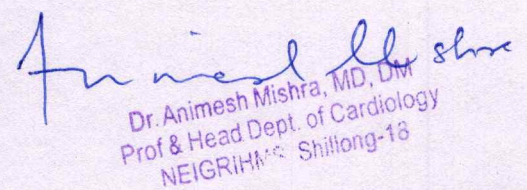 Animesh Mishra
Dr. Animesh Mishra, MD, DM
Prof & Head Dept. of Cardiology
NEIGRIHMS Shillong-18